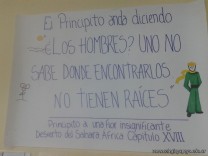 El Principito anda diciendo
¿LOS HOMBRES? UNO NO
SABE DONDE ENCONTRARLOS
NO TIENEN RAÍCES"
Principito a una flor insignificante
Desierto del Sahara Africa Capítulo XVIII